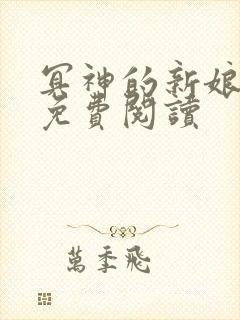 冥神的新娘
免費閱讀
萬季飛